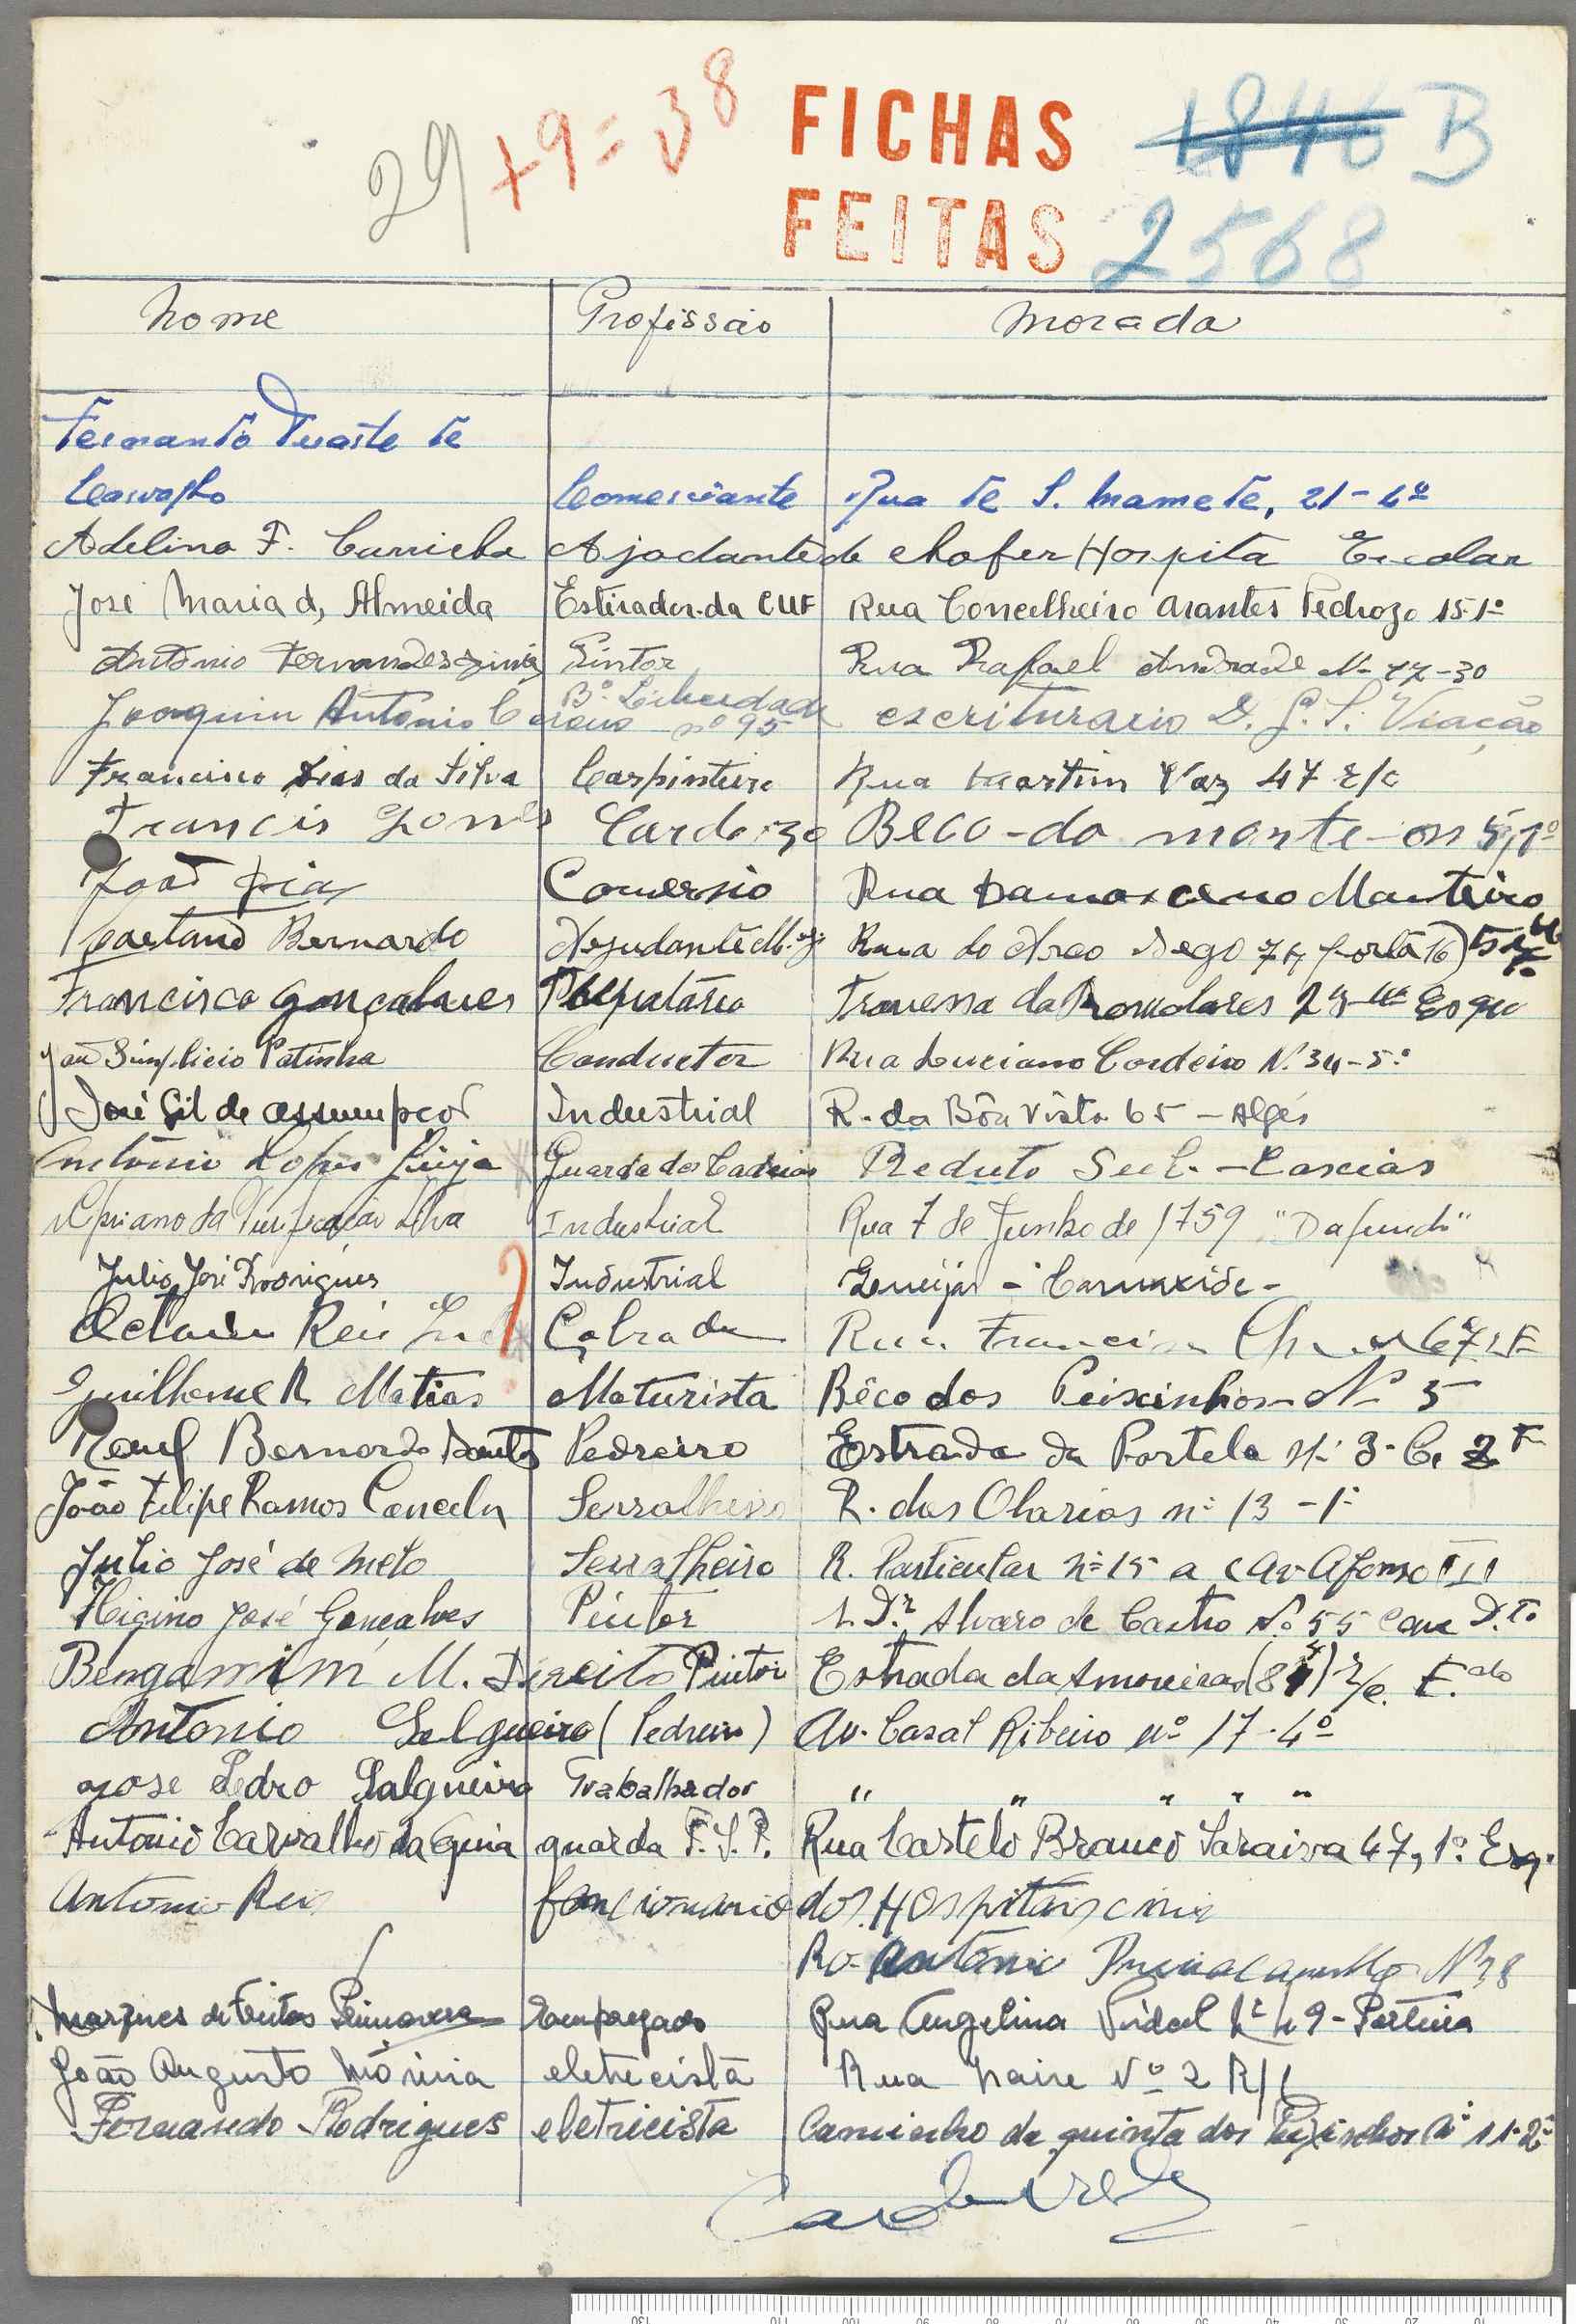 29 +9=38 FICHAS 1846 B
FEITAS 2568
Nome Profissão Morada
Fernando Duarte de
Carvalho Comerciante Rua de S. Mamede, 21-4º
Adelino F. Ajodante de chofer Hospita Escolar
José Maria d, Almeida Estirador da CUF Rua Concelheiro Arantes Pedrozo 15-1º
António Fernandes Pintor Rua Rafael Andrade Nº
Joaquim António Bº Liberdade nº 95 escriturario D. G. S. Viação
Francisco Dias da Silva Carpinteiro Rua Martim Vaz 47 r/c
Francis Gomes Cardozo Beco-do monte
João Dias Comersio Rua Damasceno Monteiro
Caetano Bernardo Ajudante Rua do Arco Sego porta 16
Francisco Gonçalves Travessa da Romulares
João Simplicio Patinha Conductor Rua Luciano Cordeiro N. 34-5º
José Gil de assumpção Industrial R. da Bôa Vista 65 - Algés
António Lopes Guarda das Cadeias Reduto Sul - Caxias
Cipriano da Purificação Silva Industrial Rua 7 de Junho de 1759 "Dafundo"
Julio José Rodrigues Industrial - Carnaxide -
Reis Cobrador Rua
Guilherme R. Matias Moturista Bêco dos Peixinhos Nº 5
Raul Bernardo Santos Pedreiro Estrada da Portela Nº 3
João Filipe Ramos Serralheiro R. das Olarias nº 13 - 1º
Julio José de Melo Serralheiro R. Particular nº 15 a (Av-Afonso III
Higino José Gonçalves Pintor Dr. Alvaro de Castro Nº 55 Cave D.to
Bengamim M. Direito Pintor Estrada da Amoreiras r/c.
António Salgueiro (Pedreiro) Av. Casal Ribeiro nº 17-4º
José Pedro Salgueiro Trabalhador " " " " "
António Carvalho da Guia guarda P.S.P. Rua Castelo Branco Saraiva 47, 1º Esq.
António Reis foncionario dos Hospitais civis
António
Marques de Freitas Primavera Empregado Rua Angelina Vidal
João Augusto eletrecista Rua Nº 2 R/C
Fernando Rodrigues eletricista Caminho da quinta dos Peixinhos Nº 11-2º